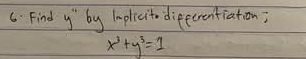 6. Find y" by Implicit differentiation;
x³+y³=1